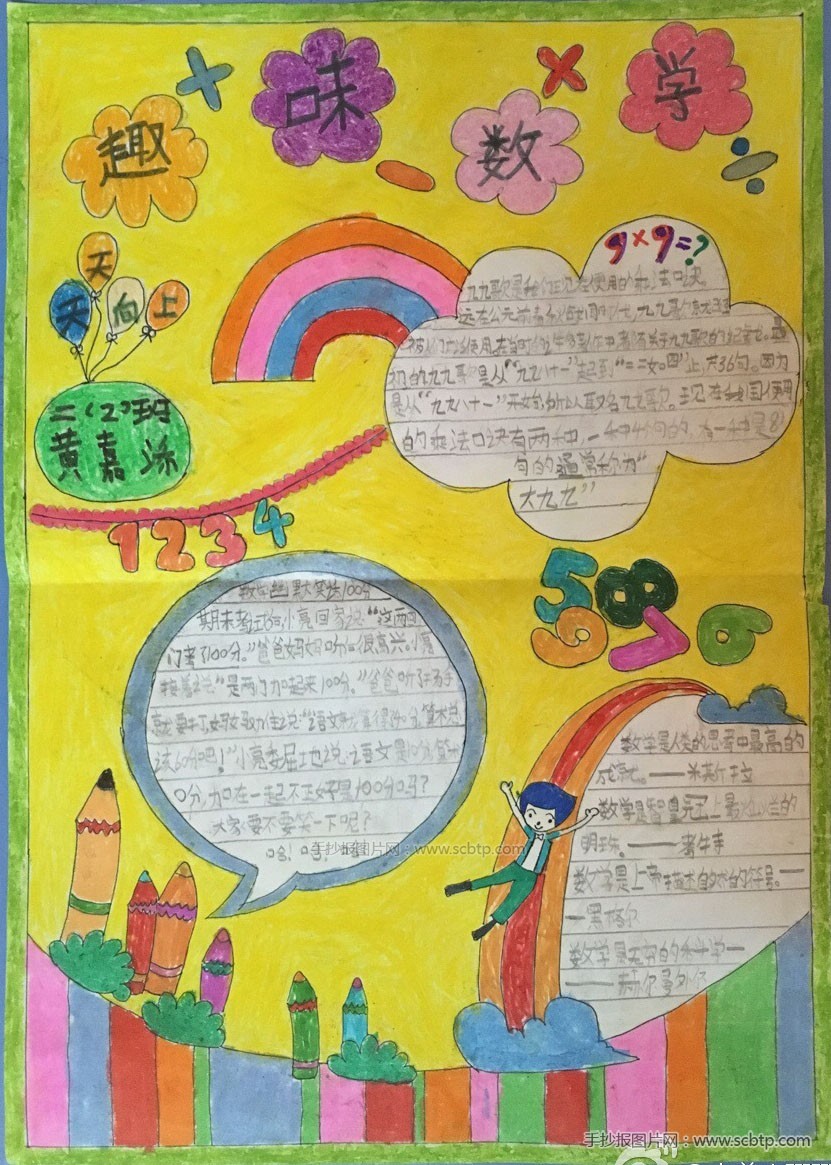 趣味数学
天天向上
二(2)班
黄嘉
9×9=?
九九歌是我们现在使用的乘法口诀。
远在公元前春秋战国时代，九九歌就已经
被人们广泛使用。在当时的许多著作中都有关于九九歌的记载。最
初的九九歌是从“九九八十一”起到“二二如四”止，共36句。因为
是从“九九八十一”开始，所以取名九九歌。现在我国使用
的乘法口诀有两种，一种45句的，有一种是81
句的通常称为“
大九九”
1 2 3 4
5 8
9 7 6
数学幽默笑话100分
期末考试后，小亮回家说“这两
门考了100分。”爸爸妈妈听后很高兴。小亮
接着说“是两门加起来100分。”爸爸听了
就要打，妈妈说“语文
该60分吧！”小亮委屈地说语文是10分算术
0分，加在一起不正好是100分吗？
大家要不要笑一下呢？
哈！哈！
手抄报图片网：www.scbtp.com
数学是人类的思考中最高的
成就。——米斯拉
数学是智皇冠上最灿烂的
明珠。——考特
数学是上帝描述自然的符号。—
—黑格尔
数学是无穷的科学—
—赫尔曼外尔
手抄报图片网：www.scbtp.com